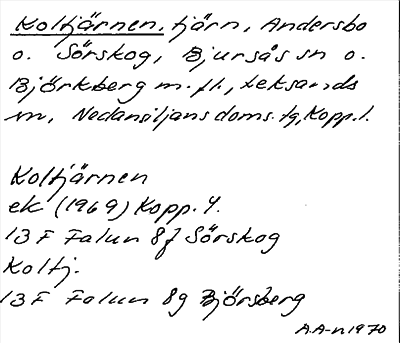 Koltjärnen, tjärn, Andersbo
o. Sörskog, Bjursås sn o.
Björkberg m.fl., Leksands
sn, Nedansiljans doms.tg, Kopp.l.
Koltjärnen
ek (1969) Kopp.
13 F Falun 8f Sörskog
Koltj.
13 F Falun 8g Björsberg
A.A-n 1970